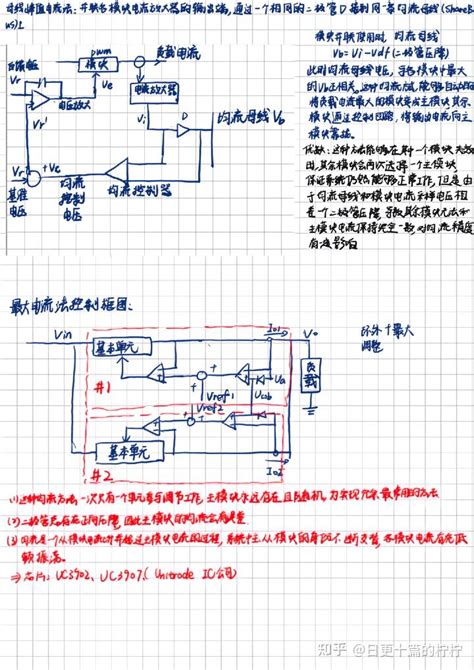 母线峰值电流法:并联各模块电流放大器的输出端,通过一个相同的二极管D接到同一条均流母线(ShareB
us)上
反馈电压
pwm
模块
负载电流
Vr
Ve
电压放大
电流放大器
Vr'
Vi
D
均流母线 Vb
Vr
Vc
基准
电压
均流
控制
电压
均流控制器
模块并联使用时,均流母线
Vb=Vi-Vdf(二极管压降)
此时均流母线电压,与各模块中最大
的Vb正相关,这种均流方式,能够自动的
将负载电流最大的模块变成主模块,其余
模块通过控制回路,将输出电流向主
模块靠拢。
优缺:这种方法能够在某个模块失效
因,其余模块会再次选择一个主模块,
保证系统仍然能够正常工作,但是由
于均流母线和模块电流采样电压相
差一个二极管压降,导致其余模块无法和
主模块电流保持完全一致,对均流精度
有段影响
最大电流法控制框图:
Vin
基本单元
Io1
Vo
#1
负载
Ua
Vref1
Ucb
Vref2
基本单元
Io2
#2
环外个最大
调整
(1)这种均流方法,一次只有一个单元参与调节工作,主模块永远存在且随机,为实现冗余最常用的方法
(2)二极管总存在正向压降,因此主模块的均流会有误差
(3)均流是一个从模块电流上升并超过主模块电流的过程,系统中主从模块的身份不断交替,各模块电流存在低
频振荡。
⇒芯片:UC3902、UC3907(Unitrode IC公司)
知乎 @日更十篇的柠柠